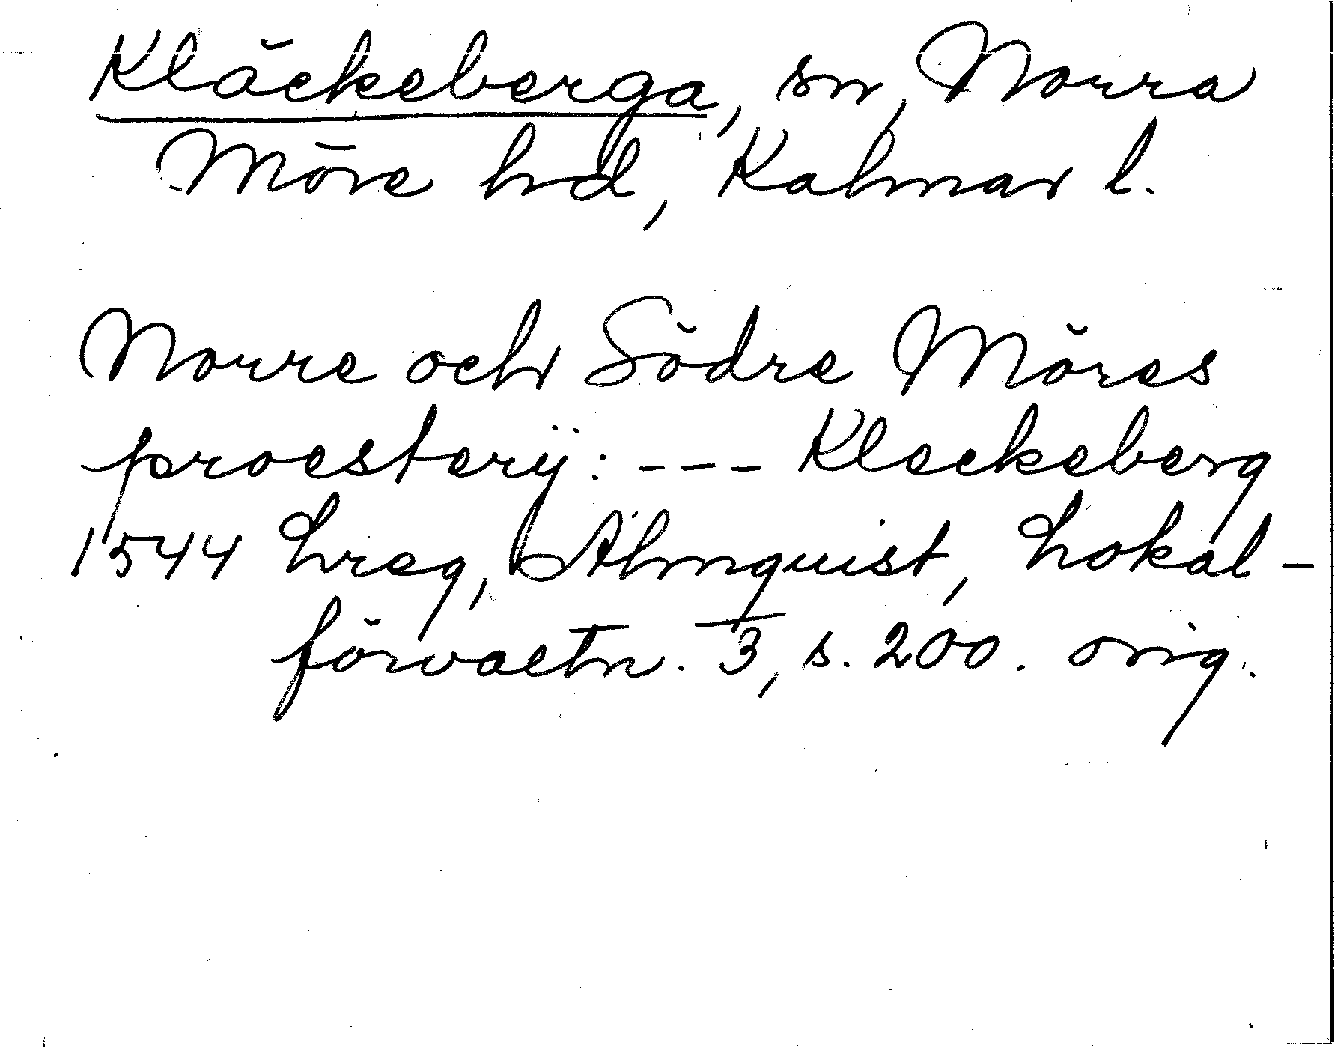 Kläckeberga, sn, Norra
Möre hd, Kalmar l.
Norre och Södre Möres
proestery: --- Kleckeberg
1544 Lreg, Almquist, Lokal-
förvaltn. 3, s. 200. orig.